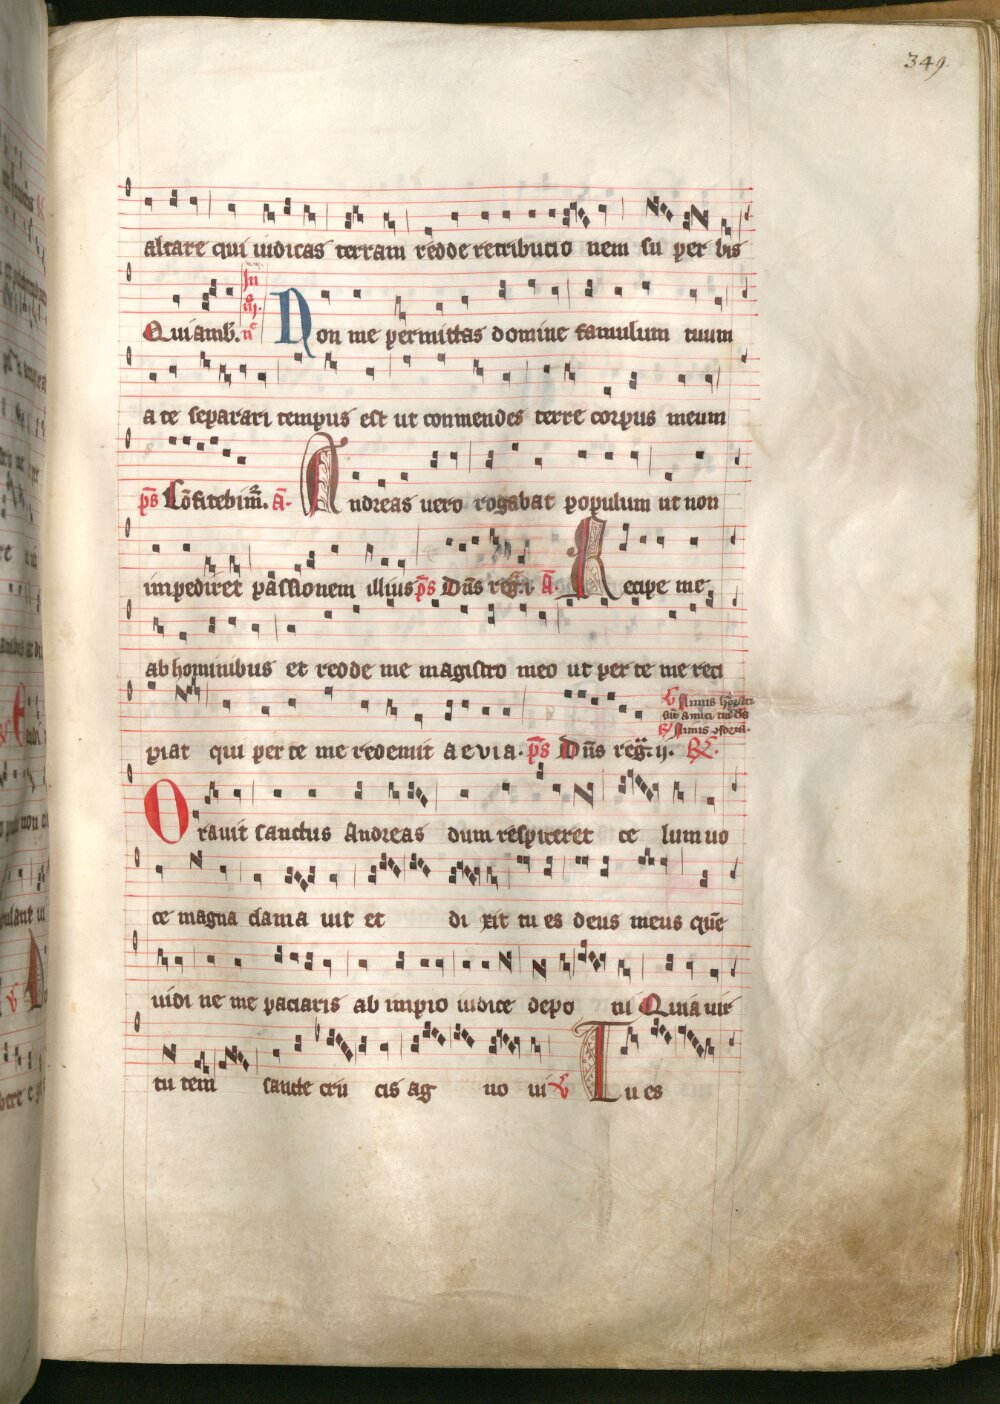 349
altare qui iudicas terram redde retributio nem su per bis
Qui amb̄. In iij. n̄ Non me permittas domine famulum tuum
a te separari tempus est ut conmendes terre corpus meum
p̄s Cōfitebim̄. ā. Andreas uero rogabat populum ut non
impediret passionem illius p̄s Dn̄s reg. i. ā. Recipe me
ab hominibus et redde me magistro meo ut per te me reci
piat qui per te me redemit a e v i a. p̄s Dn̄s reg. ij. ℟.
Orauit sanctus Andreas dum respiceret ce lum uo
ce magna clama uit et di xit tu es deus meus quē
uidi ne me paciaris ab impio iudice depo ni Quia uir
tu tem sancte cru cis ag no ui ℣ Tu es